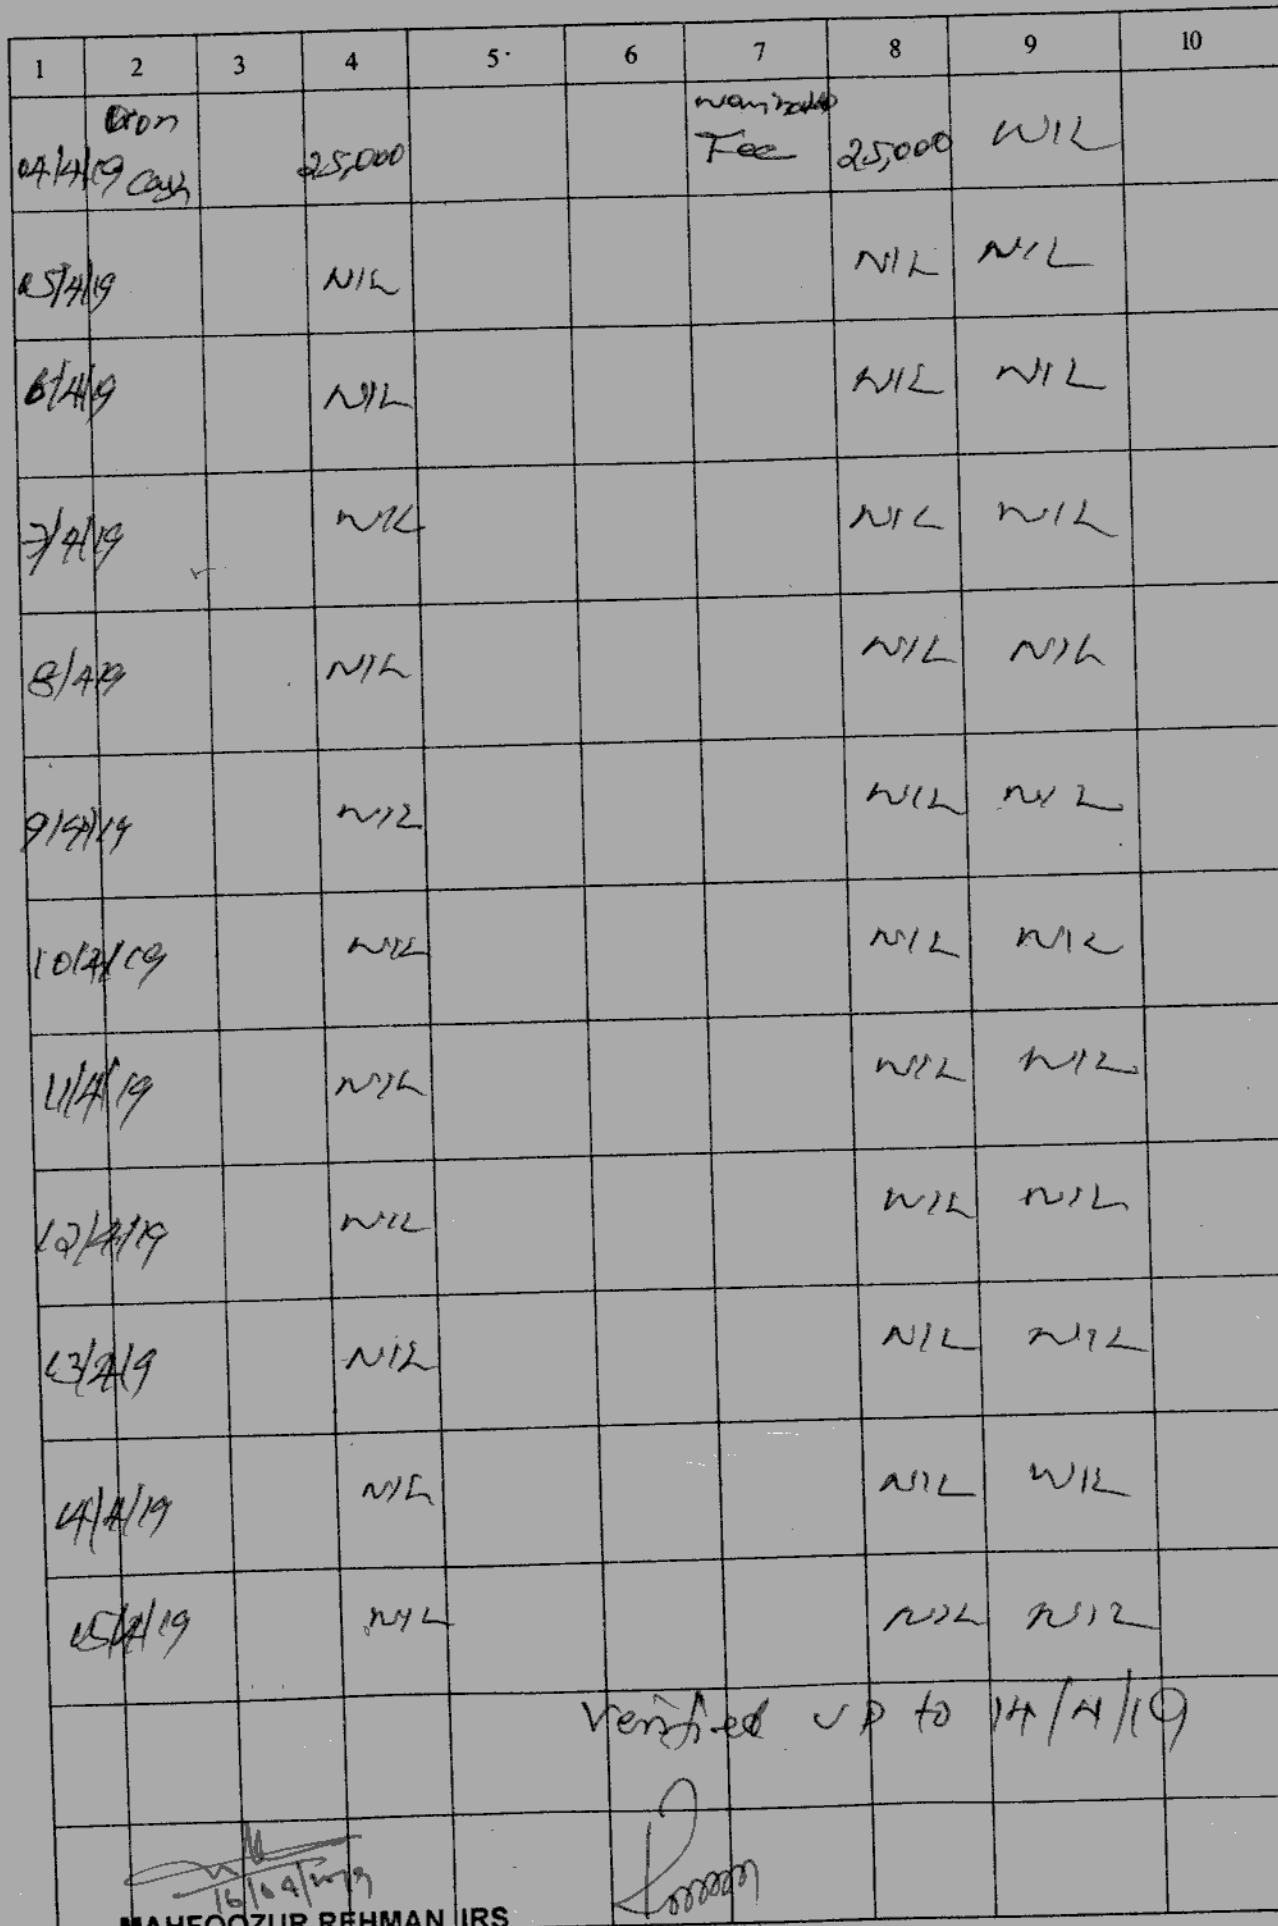 1 2 3 4 5 6 7 8 9 10
04/4/19 Cash 25,000 Fee 25,000 NIL
05/4/19 NIL NIL NIL
6/4/19 NIL NIL NIL
7/4/19 NIL NIL NIL
8/4/19 NIL NIL NIL
9/4/19 NIL NIL NIL
10/4/19 NIL NIL NIL
11/4/19 NIL NIL NIL
12/4/19 NIL NIL NIL
13/4/19 NIL NIL NIL
14/4/19 NIL NIL NIL
15/4/19 NIL NIL NIL
Verified up to 14/4/19
16/04/2019
MAHFOOZUR REHMAN IRS